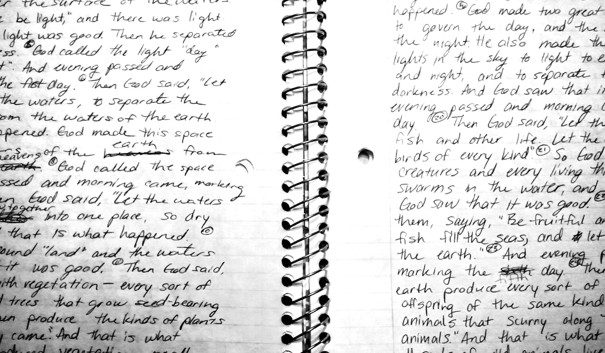 the surface of the waters
be light," and there was light
light was good. Then he separated
God called the light "day"
And evening passed and
the day. Then God said, "Let
the waters, to separate the
om the waters of the earth
pened. God made this space
earth
of the from
God called the space
ssed and morning came, marking
God said, "Let the waters
together into one place, so dry
that is what happened.
ound "land" and the waters
it was good. Then God said,
ith vegetation – every sort of
trees that grow seed-bearing
produce the kinds of plants
came. And that is what
happened. God made two great
to govern the day, and the
the night. He also made th
lights in the sky to light to e
and night, and to separate
darkness. And God saw that i
evening passed and morning
day. Then God said, "Let th
fish and other life. Let the
birds of every kind" So God
creatures and every living th
swarms in the water, and
God saw that it was good.
them, saying, "Be fruitful a
fish fill the seas, and let
the earth." And evening p
marking the day. The
earth produce every sort of
offspring of the same kind
animals that scurry along
animals." And that is what